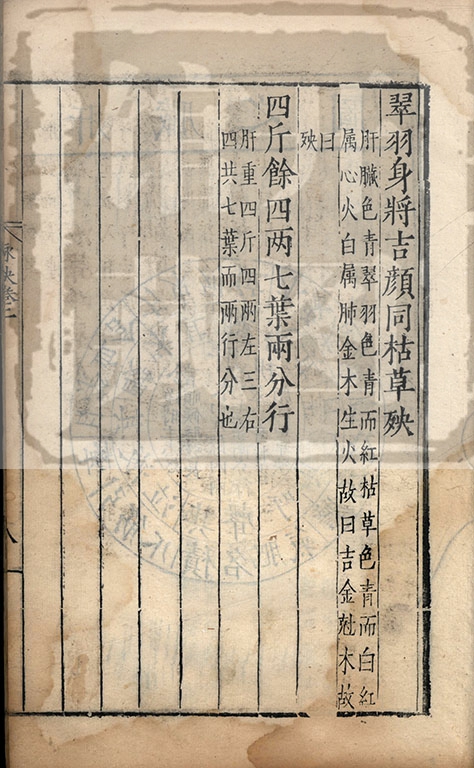 翠羽身將吉顔同枯草殃
肝臟色青翠羽色青而紅枯草色青而白紅
属心火白属肺金木生火故曰吉金尅木故
曰
殃
四斤餘四两七葉兩分行
肝重四斤四兩左三右
四共七葉而兩行分也